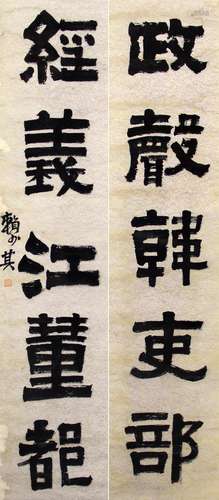 政聲韓吏部
經義江董都
賴少其